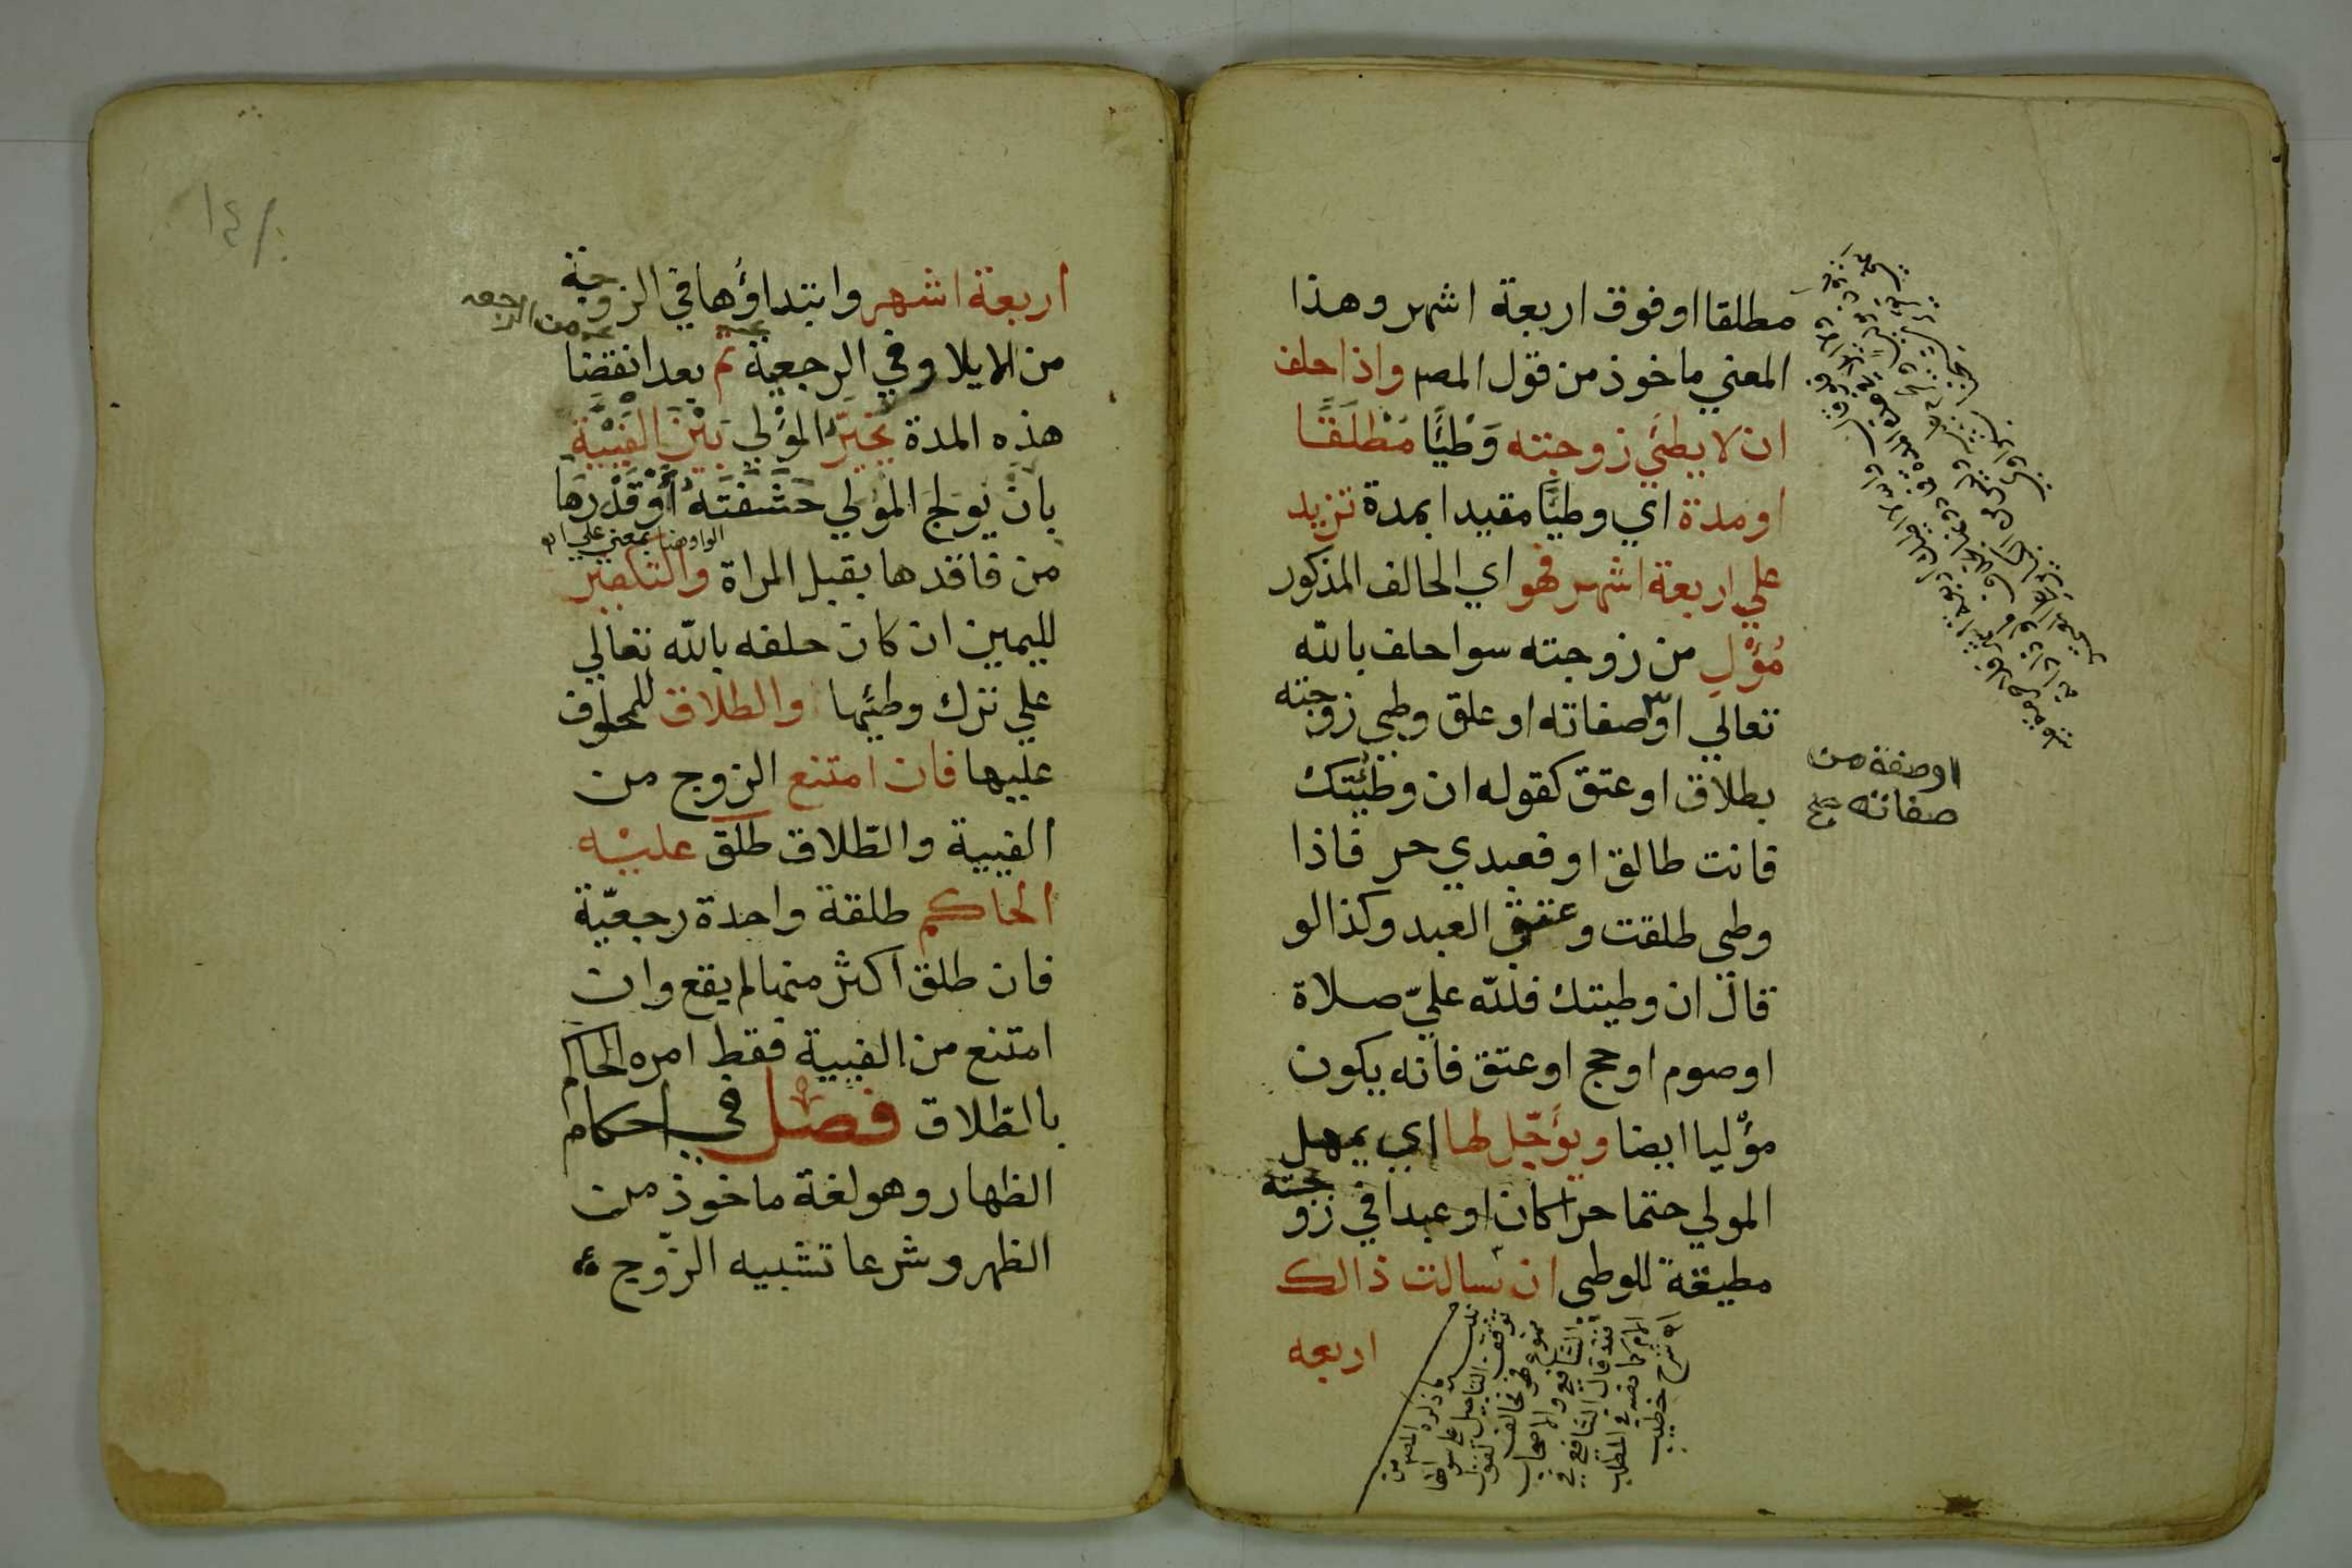 مطلقا او فوق اربعة اشهر وهذا
المعني ماخوذ من قول المصم واذا حلف
ان لا يطئي زوجته وَطْيًا مَطْلَقًا
او مدة اي وطيًا مقيدا بمدة تزيد
علي اربعة اشهر فهو اي الحالف المذكور
مُؤْلٍ من زوجته سوا حلف بالله
تعالي او صفاته او علق وطي زوجته
بطلاق او عتق كقوله ان وطئتك
فانت طالق او فعبدي حر فاذا
وطي طلقت وعتق العبد وكذا لو
قال ان وطيتك فلله عليّ صلاة
او صوم او حج او عتق فانه يكون
مؤليا ايضا ويؤجّل لها اي يمهل
المولي حتما حرا كان او عبدا في زوجته
مطيقة للوطي ان سالت ذالك
اربعه
او صفة من
صفاته صح
ما ذكره المصم من
توقف التاجيل علي سوالها
ممنوع فهو مخالف لقول
الشافعي والاصحاب
فقد قال الشافعي في
الام كما نقله في المطلب
اه شرح خطيب
١٤٠
اربعة اشهر وابتداؤها في الزوجة
من الايلا وفي الرجعية من الرجعه ثم بعد انقضا
هذه المدة يُخَيَّرُ المؤلي بَيْنَ الفَيْيَة
بان يولج المؤلي حَشَفَتَهُ أَوْ قَدْرَهَا
الواو هنا بمعني علي او
من فاقدها بقبل المراة والتكفير
لليمين ان كان حلفه بالله تعالي
علي ترك وطئها والطلاق للمحلوف
عليها فان امتنع الزوج من
الفيية والطلاق طلق عليه
الحاكم طلقة واحدة رجعيّة
فان طلق اكثر منها لم يقع وان
امتنع من الفيية فقط امره الحاكم
بالطلاق فصل في احكام
الظهار وهو لغة ماخوذ من
الظهر وشرعا تشبيه الزوج